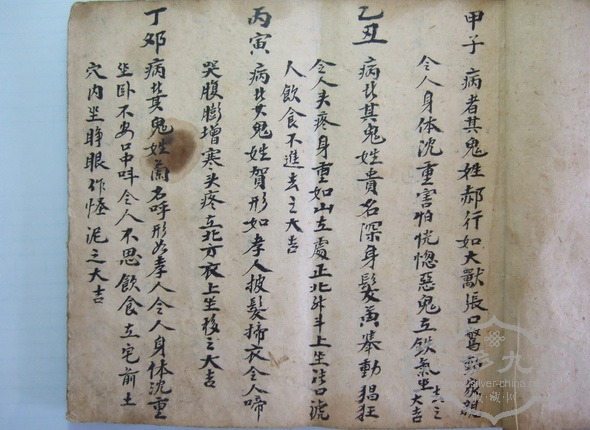 甲子 病者其鬼姓郝行如大獸張口驚動家親
令人身体沈重害怕恍惚惡鬼立鉄氣坐去之大吉
乙丑 病者其鬼姓貴名深身髮黃举動猖狂
令人头疼身重如山立處正北舛斗上坐
人飲食不進去之大吉
丙寅 病者其鬼姓賀形如孝人披髮掃衣令人啼
哭腹膨增寒头疼立北方衣上坐移之大吉
丁卯 病者其鬼姓蘭名呼形如孝人令人身体沈重
坐卧不安口中呌令人不思飲食立宅前土
穴内坐睁眼作怪泥之大吉